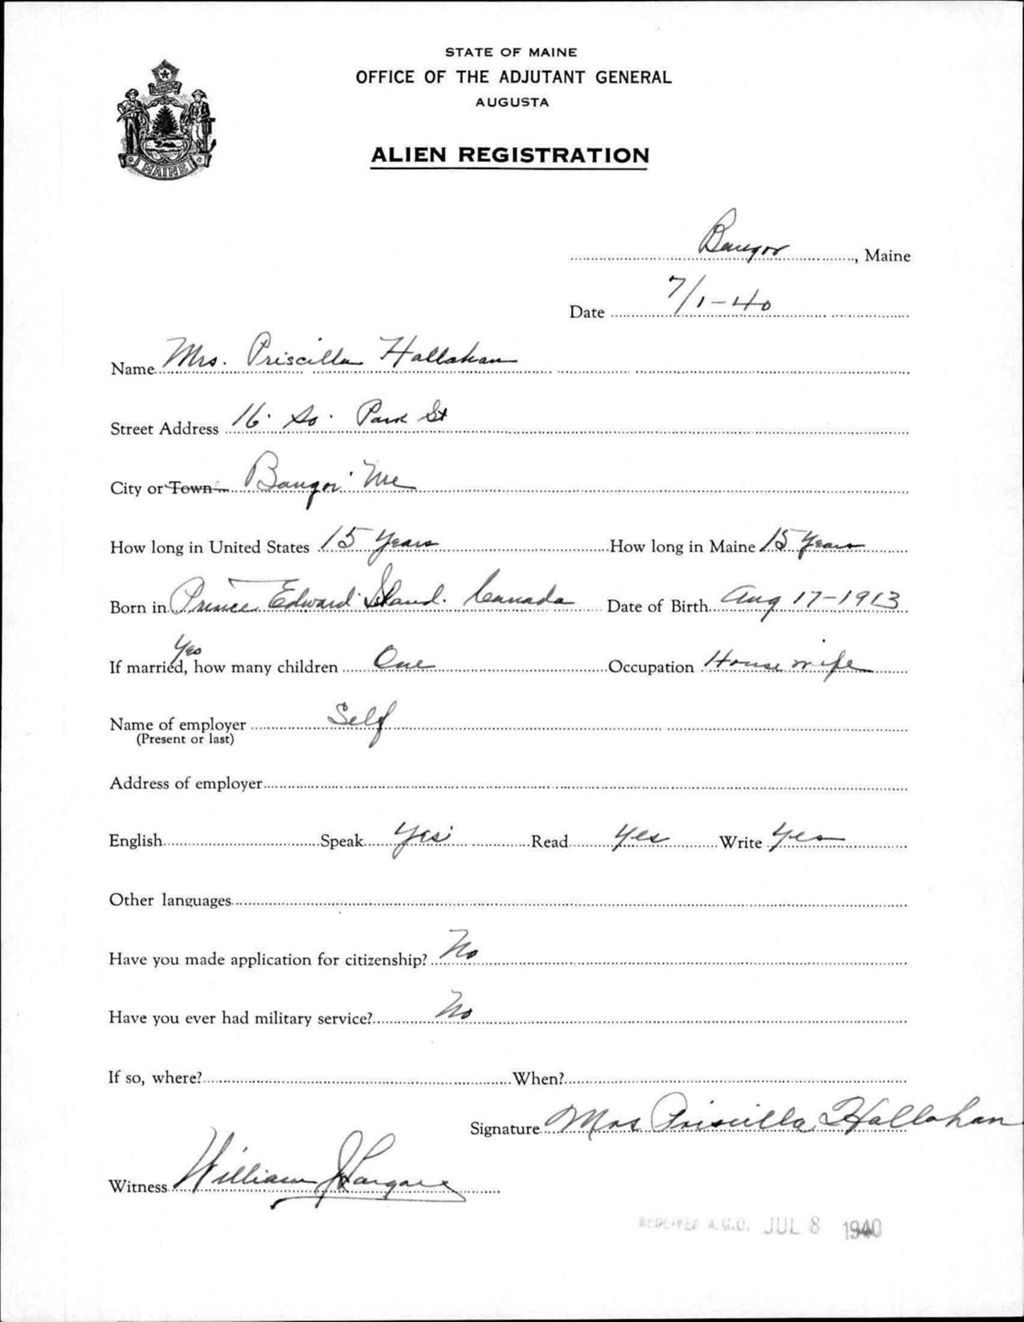 STATE OF MAINE
OFFICE OF THE ADJUTANT GENERAL
AUGUSTA
MAINE
ALIEN REGISTRATION
Bangor, Maine
Date 7/1-40
Name Mrs. Priscilla Hallahan
Street Address 16 So. Park St
City or Town Bangor Me
How long in United States 15 Years How long in Maine 15 Years
Born in Prince Edward Island. Canada Date of Birth Aug 17-1913
Yes
If married, how many children One Occupation House wife
Name of employer Self
(Present or last)
Address of employer
English Speak Yes Read Yes Write Yes
Other languages
Have you made application for citizenship? No
Have you ever had military service? No
If so, where? When?
Signature Mrs Priscilla Hallahan
Witness William J
RECEIVED A.G.O. JUL 8 1940